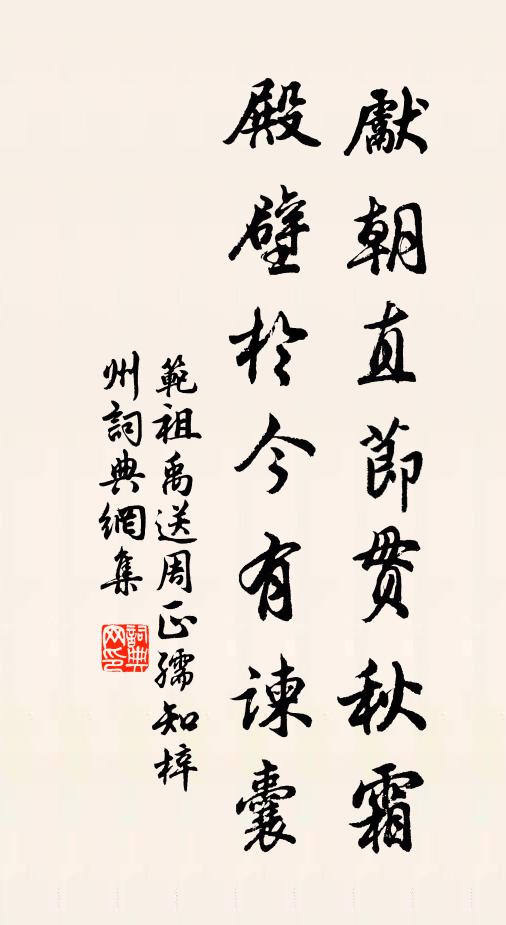 獻朝直節贯秋霜
殿壁於今有諫囊
範祖禹送周正孺知梓
州詞典網集
詞典网印